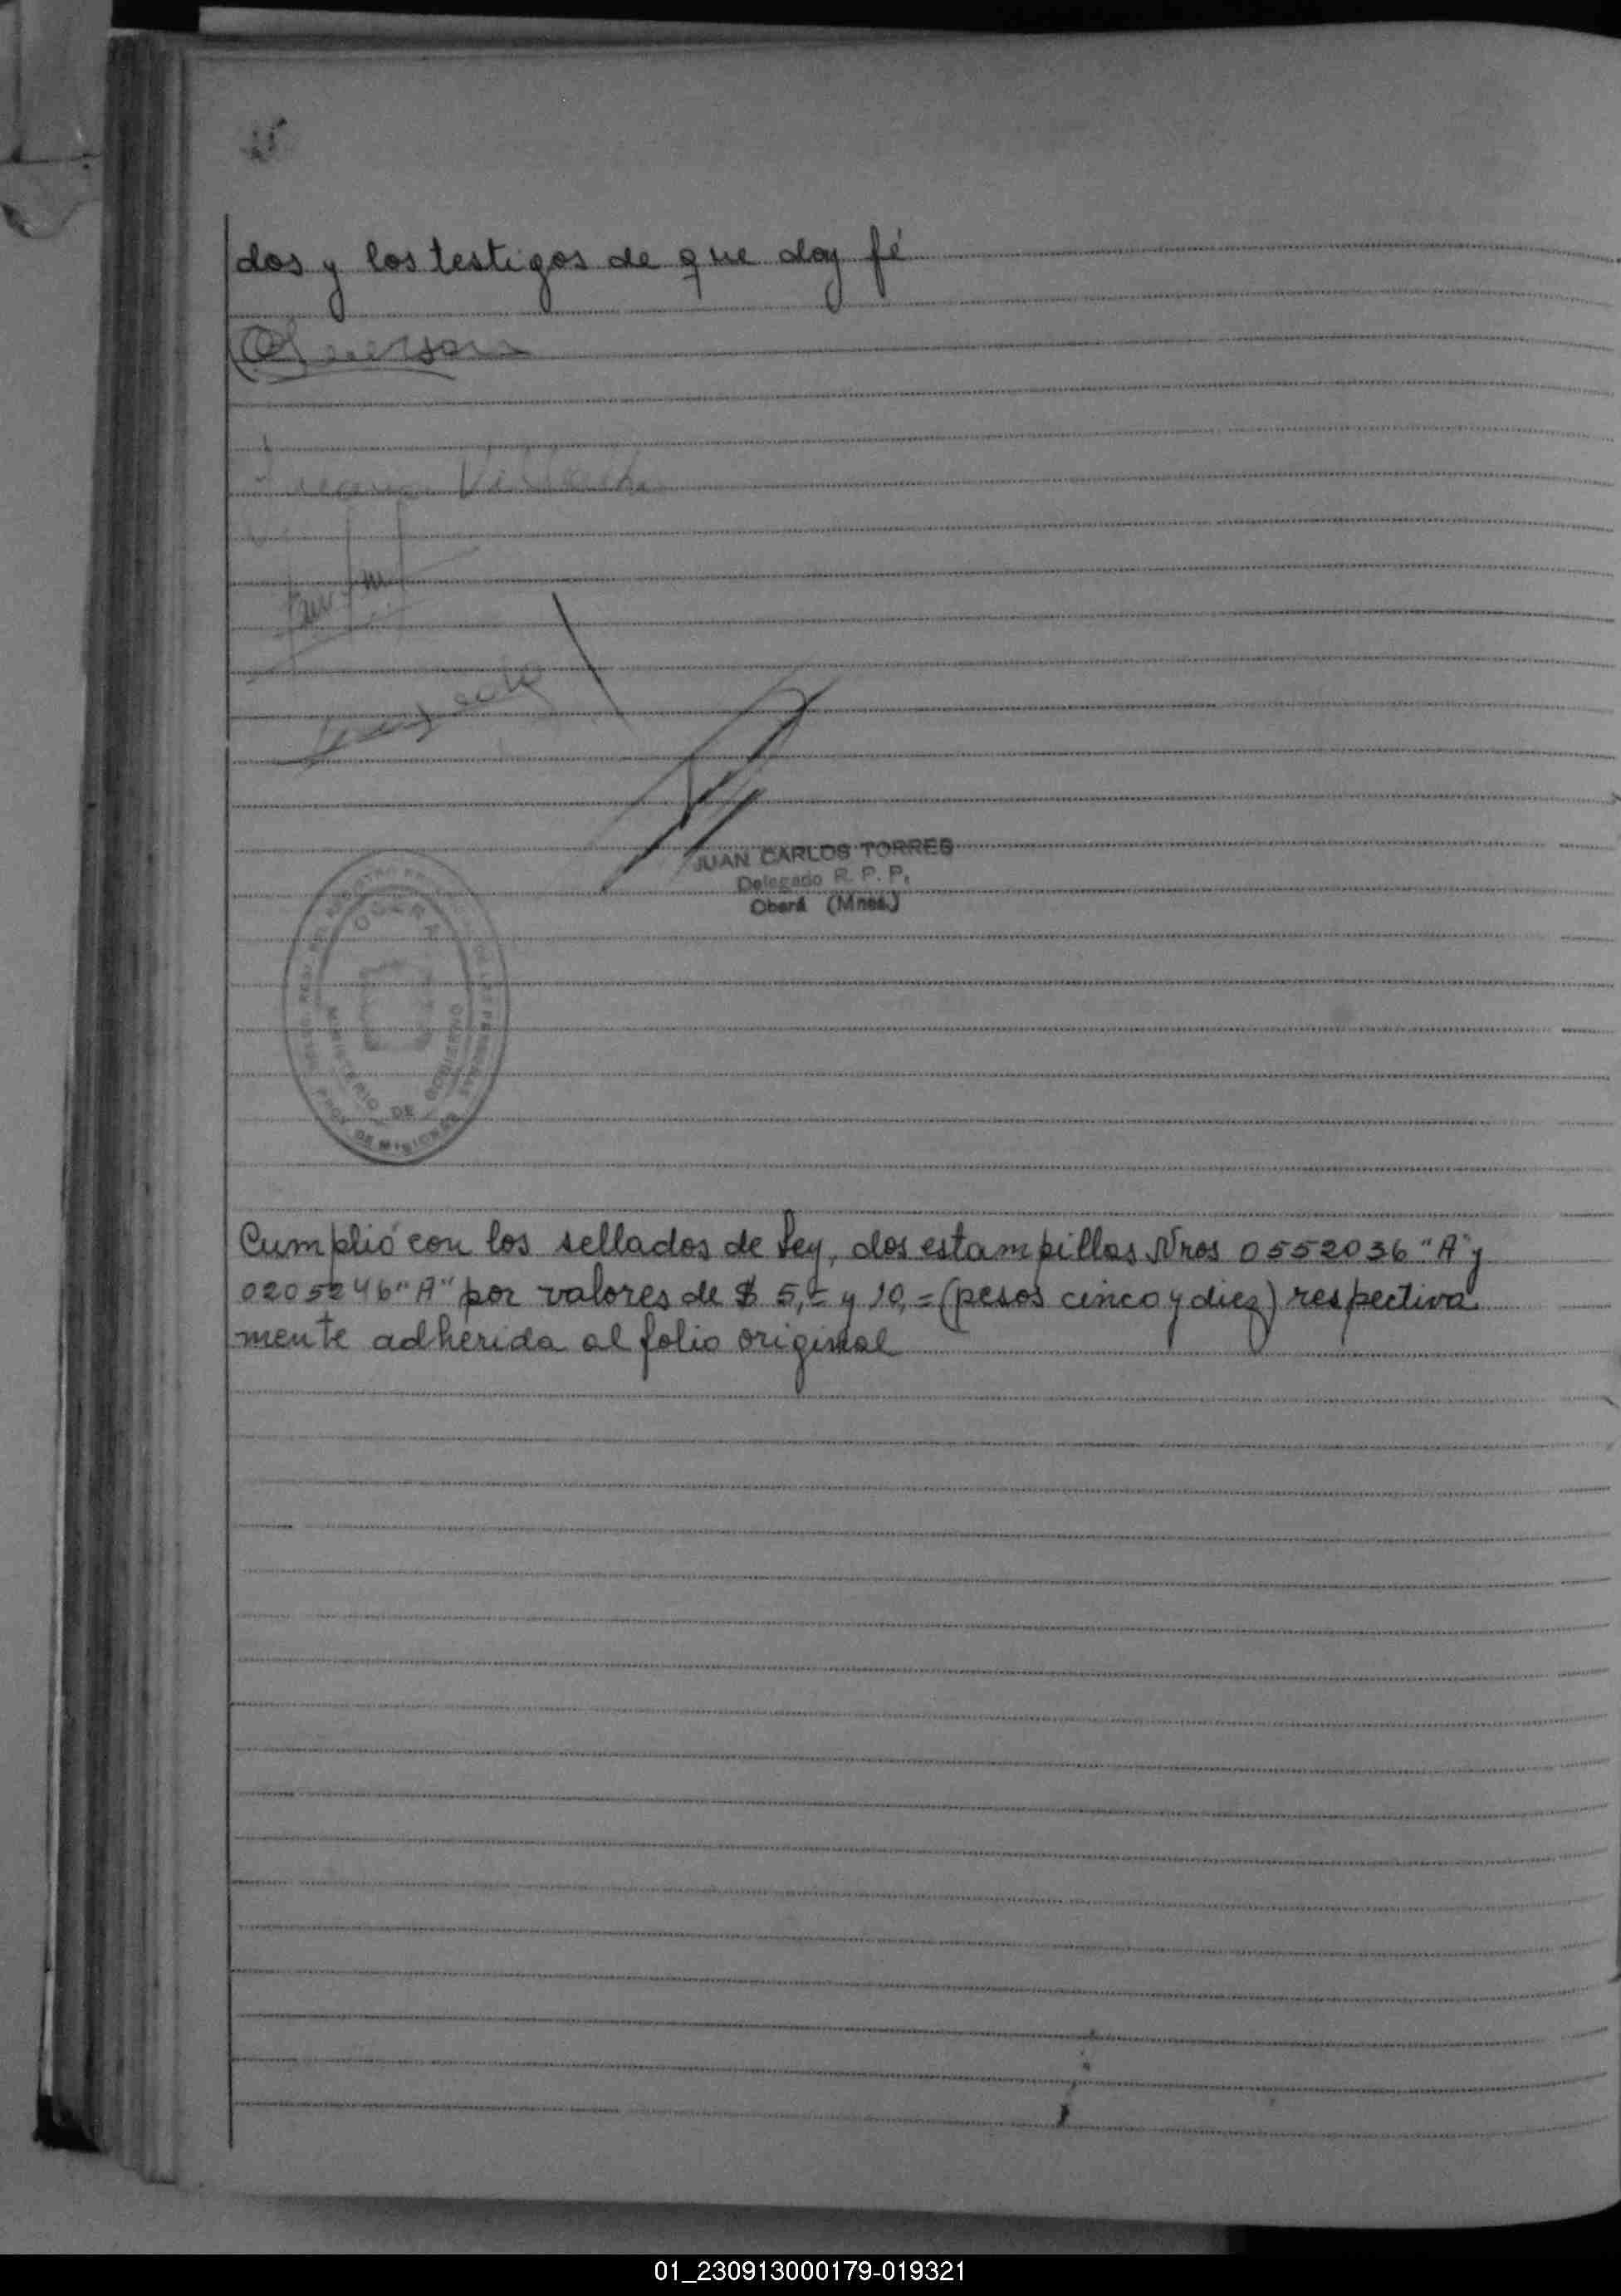 dos y los testigos de que doy fé
JUAN CARLOS TORRES
Delegado R. P. P.
Oberá (Mnes.)
OBERA
MINISTERIO DE GOBIERNO
PROV. DE MISIONES
Cumplió con los sellados de Ley, dos estampillas Nros 0552036 "A" y
0205246 "A" por valores de $ 5,= y 10,= (pesos cinco y diez) respectiva
mente adherida al folio original
01_230913000179-019321